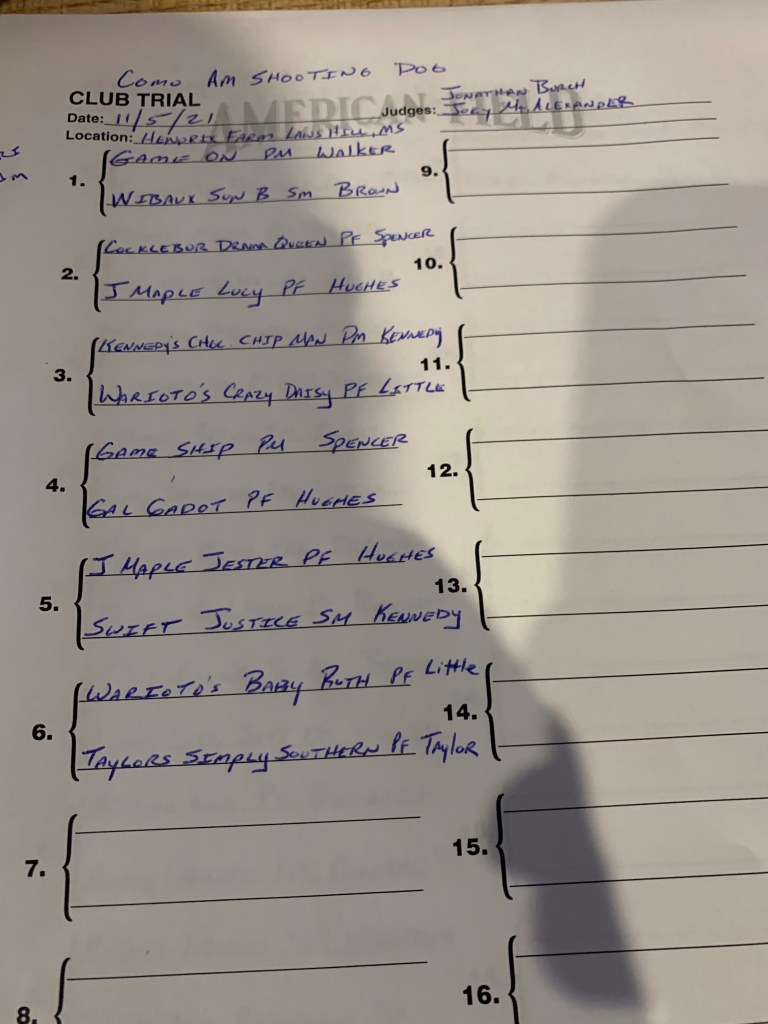 Como Am Shooting Dog
AMERICAN FIELD
CLUB TRIAL
Date: 11/5/21
Judges: Jonathan Burch
Joey McAlexander
Location: Hendrix Farm Laws Hill, MS
1. Game On PM Walker
Wibaux Sun B SM Brown
2. Cocklebur Drama Queen PF Spencer
J Maple Lucy PF Hughes
3. Kennedy's Choc. Chip Man PM Kennedy
Warioto's Crazy Daisy PF Little
4. Game Ship PM Spencer
Gal Gadot PF Hughes
5. J Maple Jester PF Hughes
Swift Justice SM Kennedy
6. Warioto's Baby Ruth PF Little
Taylors Simply Southern PF Taylor
7.
8.
9.
10.
11.
12.
13.
14.
15.
16.